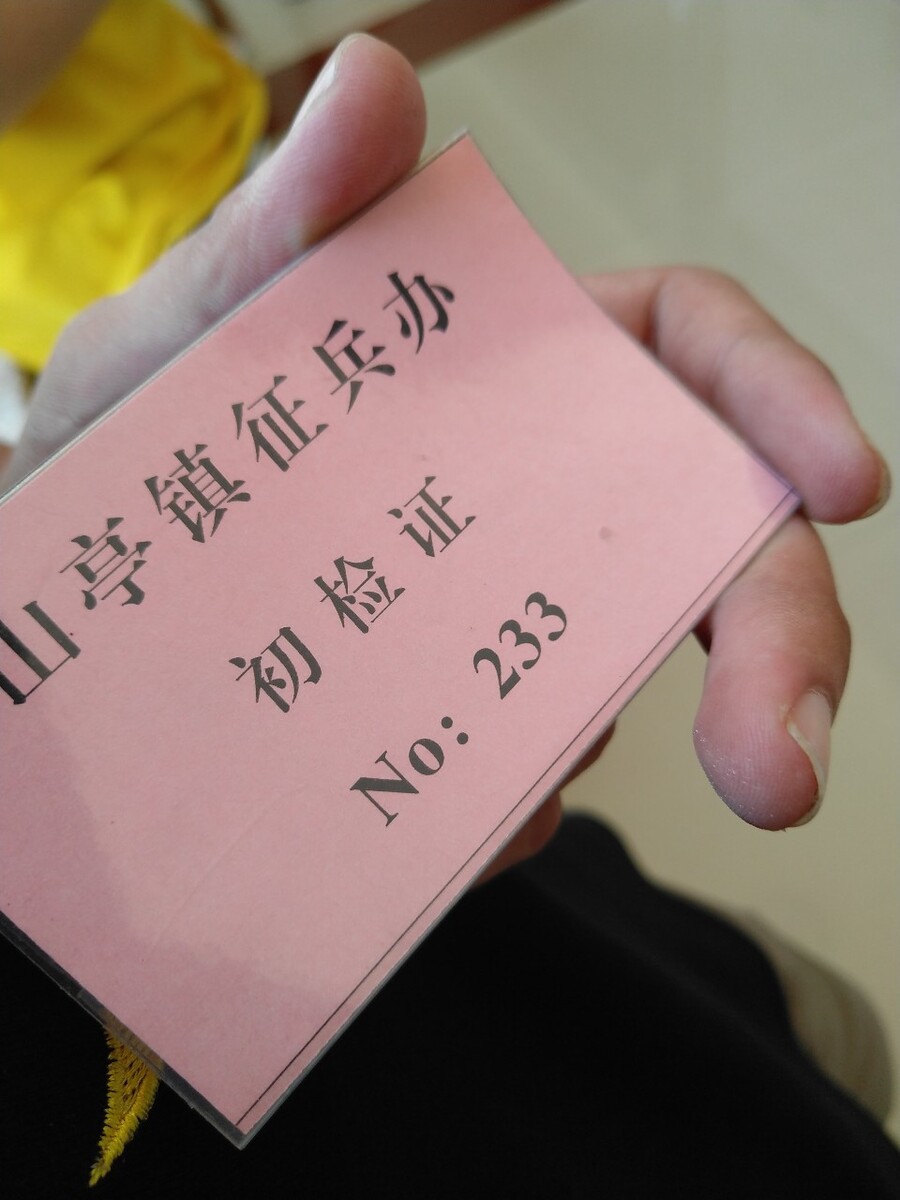 山亭镇征兵办
初检证
No: 233